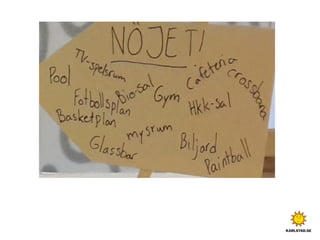 NÖJET!
TV-spelsrum
Cafeteria
Pool
Bio-sal
Crossbana
Fotbollsplan
Gym
Hkk-sal
Basketplan
mysrum
Biljard
Glassbar
Paintball
KARLSTAD.SE